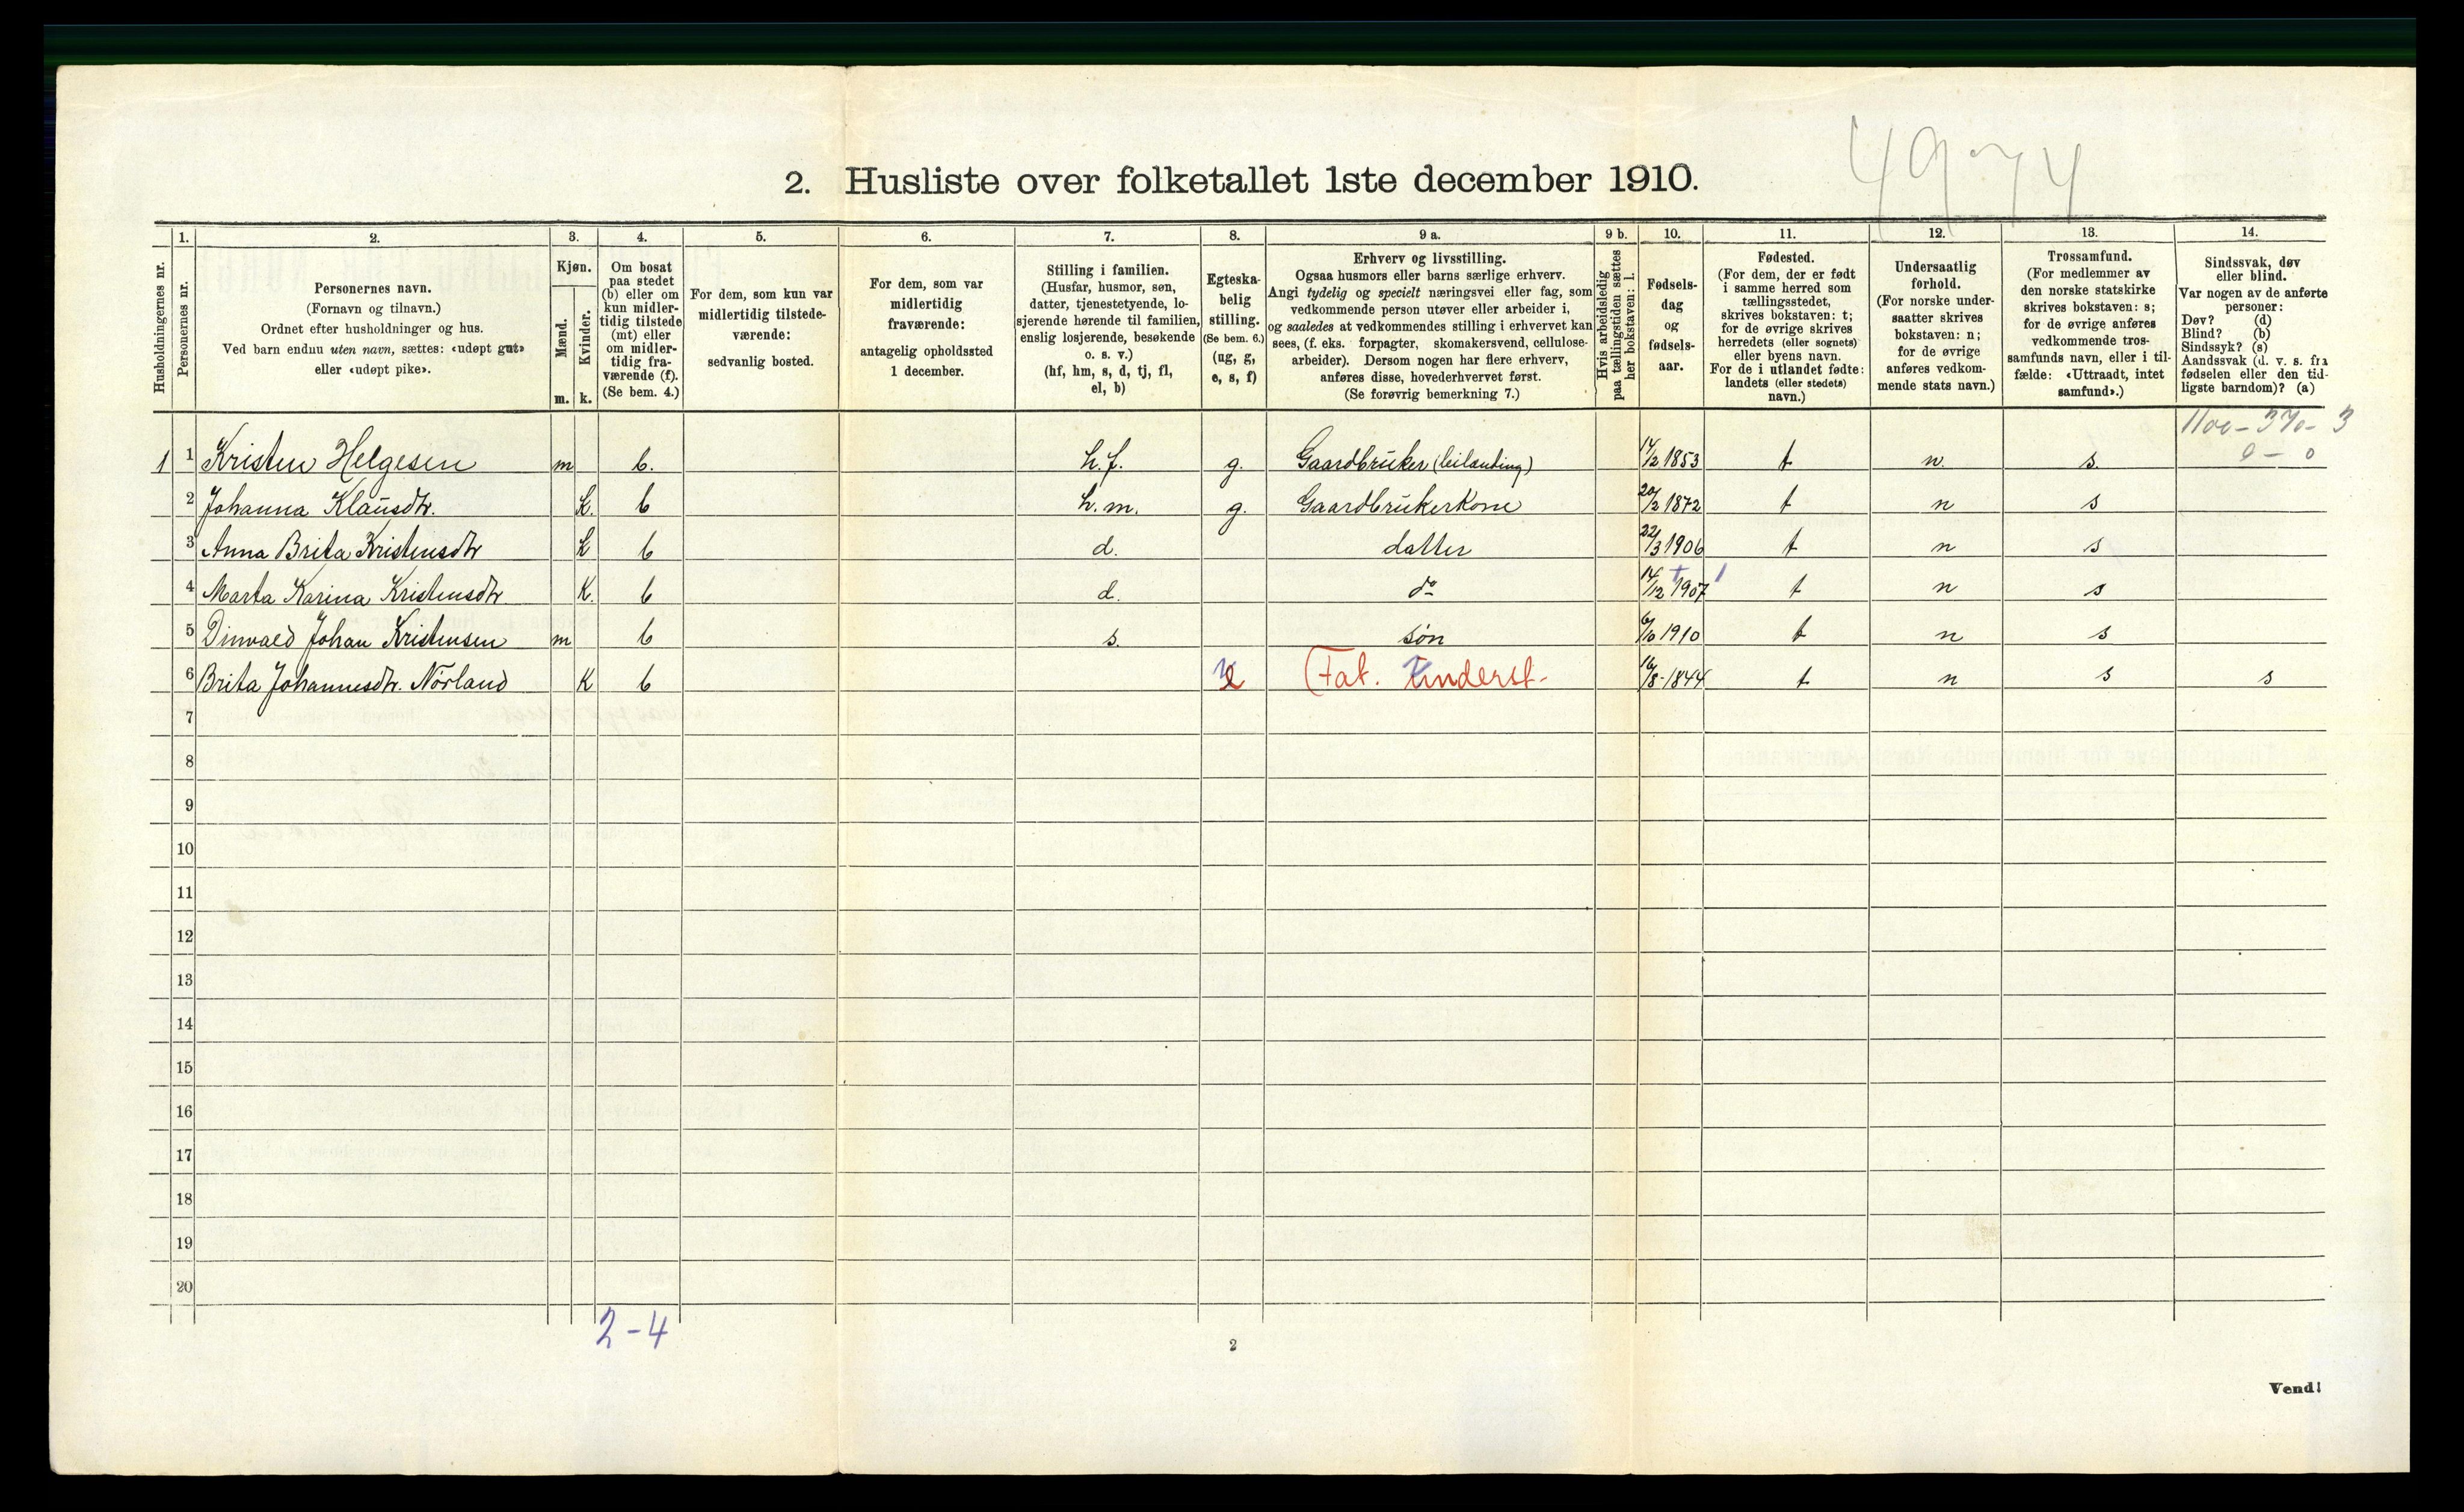 4974
2. Husliste over folketallet 1ste december 1910.
Husholdningernes nr.
1.
Personernes nr.
2.
Personernes navn.
(Fornavn og tilnavn.)
Ordnet efter husholdninger og hus.
Ved barn endnu uten navn, sættes: «udøpt gut»
eller «udøpt pike».
3.
Kjøn.
Mænd.
Kvinder.
m. k.
4.
Om bosat
paa stedet
(b) eller om
kun midler-
tidig tilstede
(mt) eller
om midler-
tidig fra-
værende (f).
(Se bem. 4.)
5.
For dem, som kun var
midlertidig tilstede-
værende:
sedvanlig bosted.
6.
For dem, som var
midlertidig
fraværende:
antagelig opholdssted
1 december.
7.
Stilling i familien.
(Husfar, husmor, søn,
datter, tjenestetyende, lo-
sjerende hørende til familien,
enslig losjerende, besøkende
o. s. v.)
(hf, hm, s, d, tj, fl,
el, b)
8.
Egteska-
belig
stilling.
(Se bem. 6.)
(ug, g,
e, s, f)
9 a.
Erhverv og livsstilling.
Ogsaa husmors eller barns særlige erhverv.
Angi tydelig og specielt næringsvei eller fag, som
vedkommende person utøver eller arbeider i,
og saaledes at vedkommendes stilling i erhvervet kan
sees, (f. eks. forpagter, skomakersvend, cellulose-
arbeider). Dersom nogen har flere erhverv,
anføres disse, hovederhvervet først.
(Se forøvrig bemerkning 7.)
9 b.
Hvis arbeidsledig
paa tællingstiden sættes
her bokstaven: l.
10.
Fødsels-
dag
og
fødsels-
aar.
11.
Fødested.
(For dem, der er født
i samme herred som
tællingsstedet,
skrives bokstaven: t;
for de øvrige skrives
herredets (eller sognets)
eller byens navn.
For de i utlandet fødte:
landets (eller stedets)
navn.)
12.
Undersaatlig
forhold.
(For norske under-
saatter skrives
bokstaven: n;
for de øvrige
anføres vedkom-
mende stats navn.)
13.
Trossamfund.
(For medlemmer av
den norske statskirke
skrives bokstaven: s;
for de øvrige anføres
vedkommende tros-
samfunds navn, eller i til-
fælde: «Uttraadt, intet
samfund».)
14.
Sindssvak, døv
eller blind.
Var nogen av de anførte
personer:
Døv? (d)
Blind? (b)
Sindssyk? (s)
Aandssvak (d. v. s. fra
fødselen eller den tid-
ligste barndom)? (a)
1100 - 370 - 3
0 - 0
1 1 Kristen Helgesen m b. h.f. g. Gaardbruker (leilending) 14/2 1853 t n. s.
2 Johanna Klausdtr. k. b h.m. g. Gaardbrukerkone 20/2 1872 t n s
3 Anna Brita Kristensdtr k b d. datter 22/3 1906 t n s
4 Marta Karina Kristensdtr K. b d. do 14/12 1907 t n s
5 Dinvald Johan Kristensen m b s. søn 6/10 1910 t n s
6 Brita Johannesdtr. Nörland K b e Fat. underst. 16/8-1844 t n s s
7
8
9
10
11
12
13
14
15
16
17
18
19
20
2-4
2
Vend!